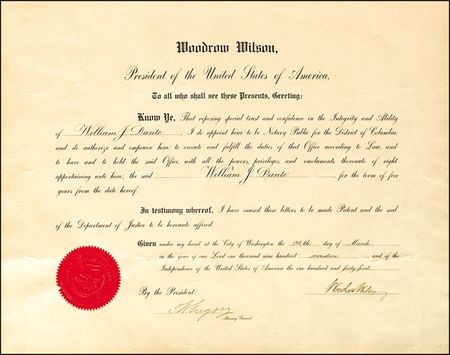 Woodrow Wilson,
President of the United States of America,
To all who shall see these Presents, Greeting:
Know Ye, That reposing special trust and confidence in the Integrity and Ability
of William J. Dante I do appoint him to be Notary Public for the District of Columbia,
and do authorize and empower him to execute and fulfill the duties of that Office according to Law, and
to have and to hold the said Office, with all the powers, privileges, and emoluments thereunto of right
appertaining unto him, the said William J. Dante for the term of five
years from the date hereof.
In testimony whereof, I have caused these letters to be made Patent and the seal
of the Department of Justice to be hereunto affixed.
Given under my hand at the City of Washington, the 20th day of March
in the year of our Lord one thousand nine hundred seventeen and of the
Independence of the United States of America the one hundred and forty-first.
By the President:
Woodrow Wilson
Attorney General